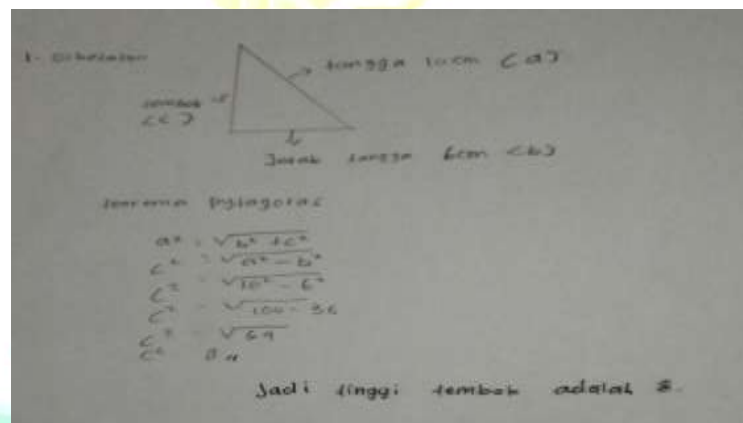 1. Diketahui
tangga 10 cm (a)
tembok
(c)
Jarak tangga 6cm (b)
teorema pytagoras
a² = √b² + c²
c² = √a² - b²
c² = √10² - 6²
c² = √100 - 36
c² = √64
c² 8
Jadi tinggi tembok adalah 8.